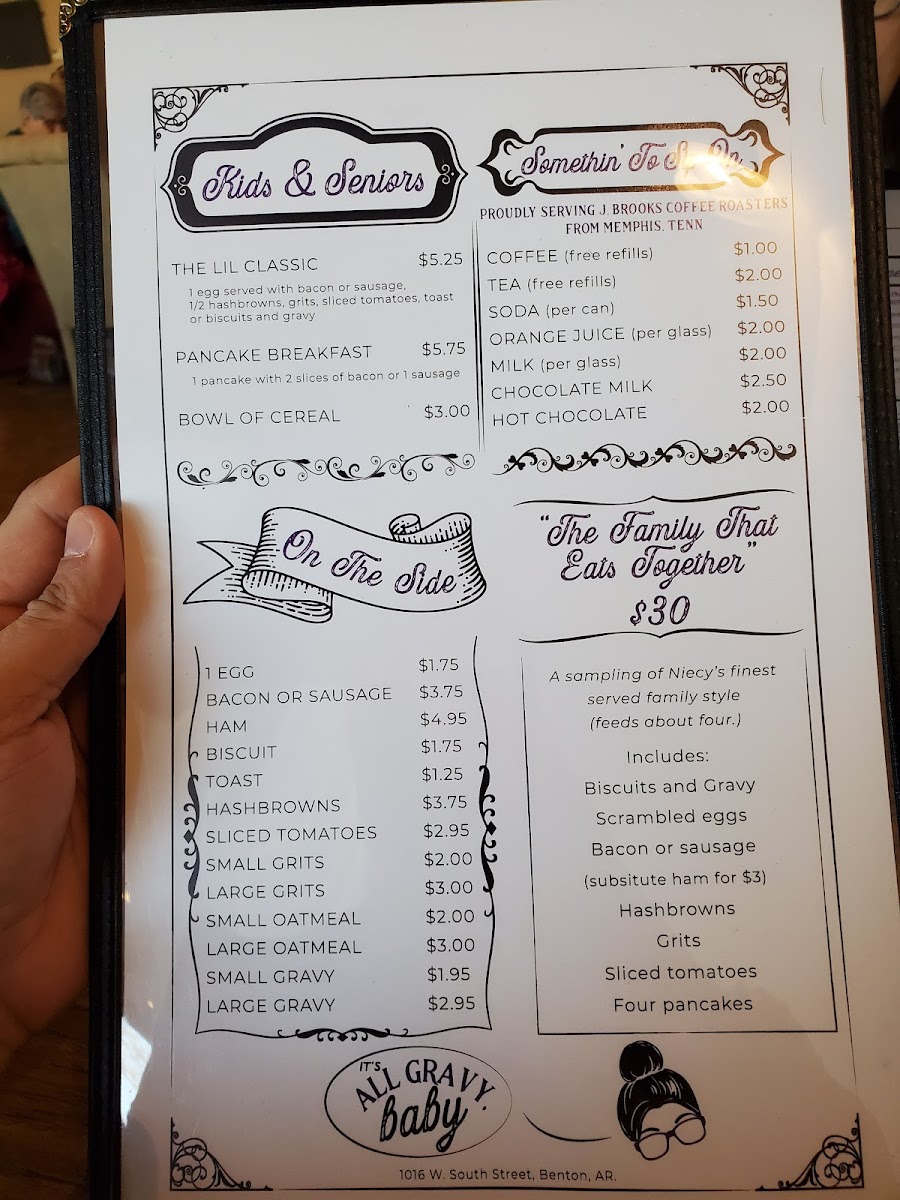 Kids & Seniors
THE LIL CLASSIC $5.25
1 egg served with bacon or sausage,
1/2 hashbrowns, grits, sliced tomatoes, toast
or biscuits and gravy
PANCAKE BREAKFAST $5.75
1 pancake with 2 slices of bacon or 1 sausage
BOWL OF CEREAL $3.00
Somethin' To Sip On
PROUDLY SERVING J. BROOKS COFFEE ROASTERS
FROM MEMPHIS, TENN
COFFEE (free refills) $1.00
TEA (free refills) $2.00
SODA (per can) $1.50
ORANGE JUICE (per glass) $2.00
MILK (per glass) $2.00
CHOCOLATE MILK $2.50
HOT CHOCOLATE $2.00
On The Side
1 EGG $1.75
BACON OR SAUSAGE $3.75
HAM $4.95
BISCUIT $1.75
TOAST $1.25
HASHBROWNS $3.75
SLICED TOMATOES $2.95
SMALL GRITS $2.00
LARGE GRITS $3.00
SMALL OATMEAL $2.00
LARGE OATMEAL $3.00
SMALL GRAVY $1.95
LARGE GRAVY $2.95
"The Family That
Eats Together"
$30
A sampling of Niecy's finest
served family style
(feeds about four.)
Includes:
Biscuits and Gravy
Scrambled eggs
Bacon or sausage
(subsitute ham for $3)
Hashbrowns
Grits
Sliced tomatoes
Four pancakes
IT'S
ALL GRAVY.
baby
1016 W. South Street, Benton, AR.